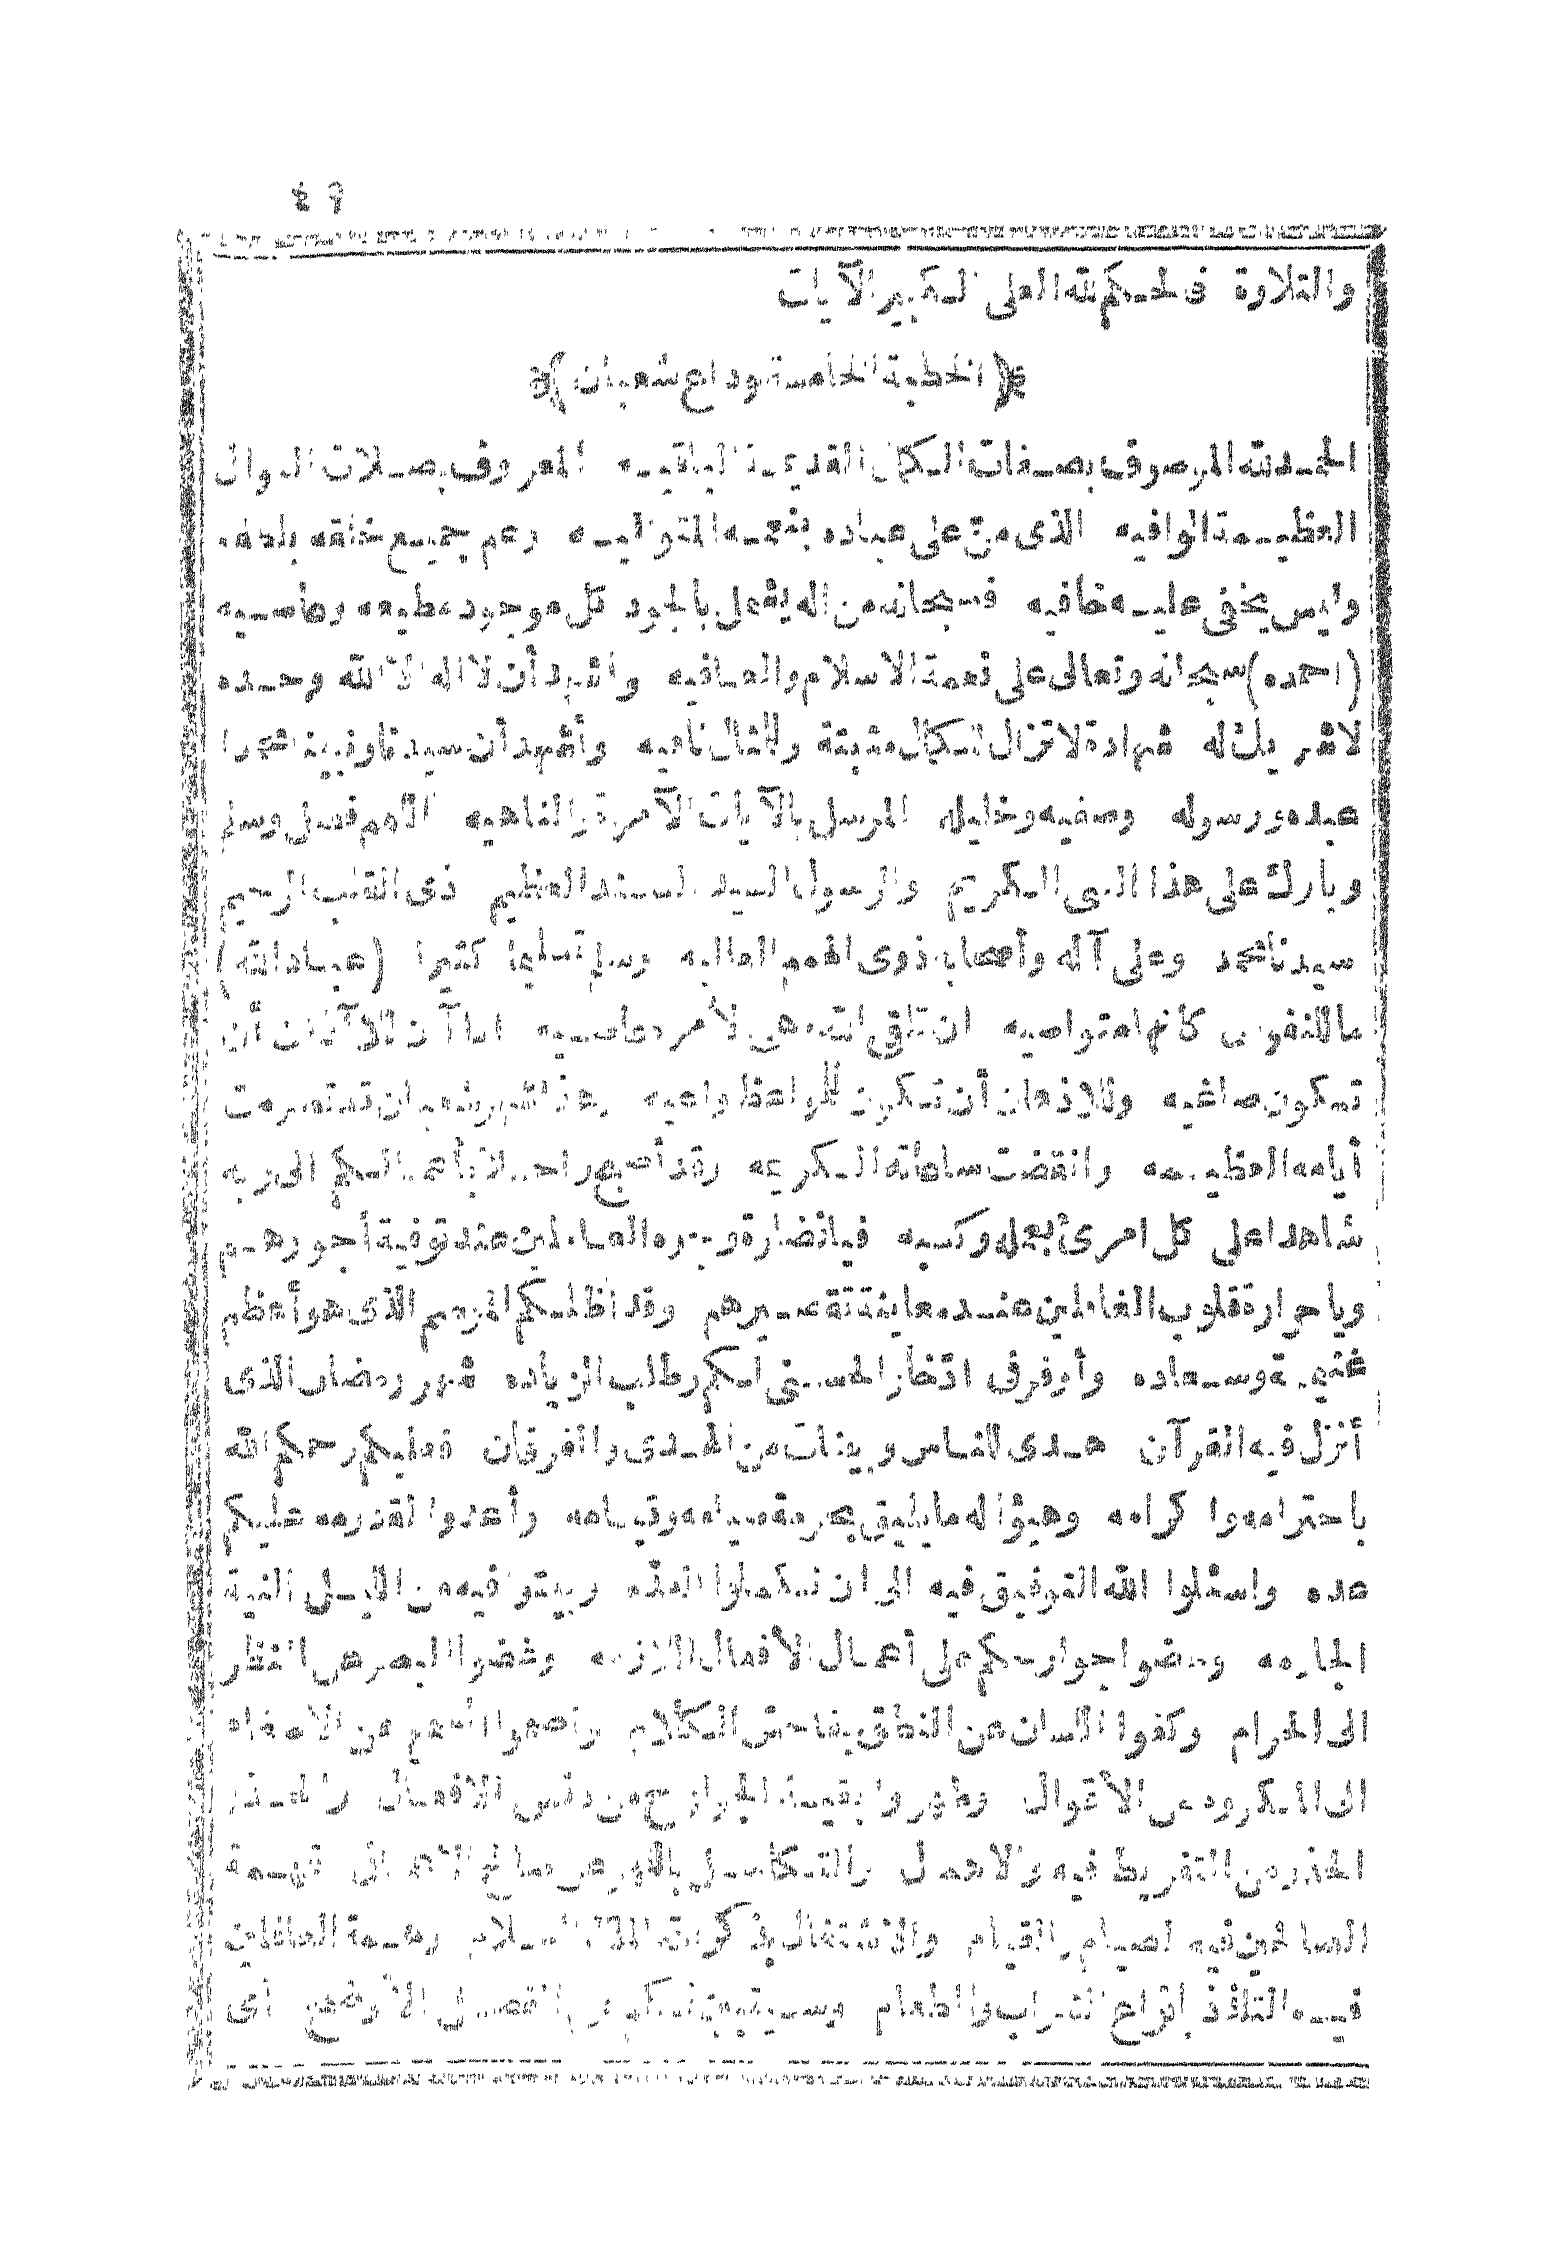 ٤٩
والتلاوة فالحكم لله العلي الكبير الآيات
﴿الخطبة الخامسة وداع شعبان﴾
الحمد لله الموصوف بصفات الكمال القديمة الباقيه المعروف بصلات النوال
العظيمة الوافيه الذى من على عباده بنعمه المتواليه وعم جميع خلقه بلطفه
وليس يخفى عليه خافيه فسبحانه من اله يشمل بالجود كل موجود مطيعه وعاصيه
(احمده) سبحانه وتعالى على نعمة الاسلام والعافيه وأشهد أن لا اله الا الله وحده
لا شريك له شهادة لا تزال للكمال مثبتة وللمثال نافيه وأشهد أن سيدنا ونبينا محمدا
عبده ورسوله وصفيه وخليله المرسل بالآيات الآمرة والناهيه اللهم فصل وسلم
وبارك على هذا النبى الكريم والرسول السيد السند العظيم ذى القلب الرحيم
سيدنا محمد وعلى آله وأصحابه ذوى الهمم العاليه وسلم تسليما كثيرا (عباد الله)
ما للنفوس كأنها متواصيه ان تلاقى الله وهى لأمره عاصيه اما آن للآذان أن
تكون صاغيه وللاذهان أن تكون للمواعظ واعيه هذا شهر شعبان قد تصرمت
أيامه العظيمه وانقضت ساعاته الكريمه وقد أصبح راحلا بأعمالكم الى ربه
شاهدا على كل امرئ بعمله وكسبه فيا نضارة وجوه العاملين عند توفية أجورهم
ويا حرارة قلوب الغافلين عند معاينة تقصيرهم وقد أظلكم الموسم الذى هو أعظم
غنيمة وسعاده وأوفر فى ادخار الحسنى لكم وطلب الزياده شهر رمضان الذى
أنزل فيه القرآن هدى للناس وبينات من الهدى والفرقان فعليكم رحمكم الله
باحترامه واكرامه وهيؤا له ما يليق بحرمة صيامه وقيامه وأعدوا لقدومه عليكم
عده واسئلوا الله التوفيق فيه الى ان تكملوا العده وبيتوا فيه من الليل النية
الجازمه وحضوا جوارحكم على أعمال الأفعال اللازمه وغضوا البصر عن النظر
الى الحرام وكفوا اللسان عن النطق بفاحش الكلام وأصموا السمع عن الاصغاء
الى المكروه من الأقوال وطهروا بقية الجوارح من دنس الافعال والحذر
الحذر من التفريط فيه والاهمال والتكاسل باللهو عن صالح الاعمال فهمة
الصالحين فيه الصيام والقيام والاشتغال بذكر الله الملك السلام وهمة الغافلين
فيه التلذذ بانواع الشراب والطعام وسيقبح أى